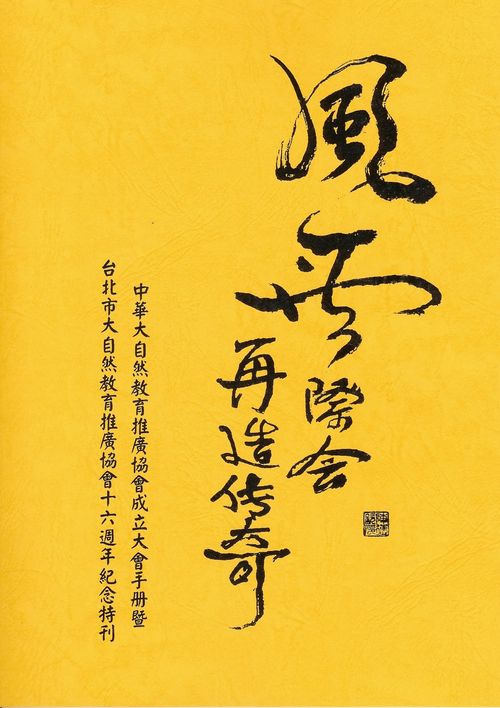 風雲際会
再造传奇
中華大自然教育推廣協會成立大會手册暨
台北市大自然教育推廣協會十六週年紀念特刊